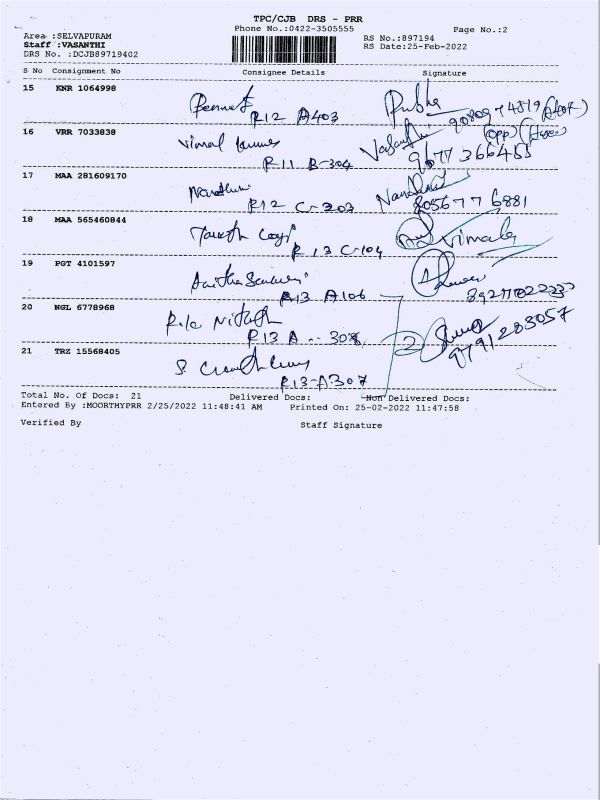 TPC/CJB DRS - PRR
Phone No.:0422-3505555
Page No.:2
Area :SELVAPURAM
Staff :VASANTHI
DRS No. :DCJB89719402
RS No.:897194
RS Date:25-Feb-2022
S No Consignment No Consignee Details Signature
15 KNR 1064998
R12 A403
Prubha
16 VRR 7033838
Vimal Kumar
R11 B-304
9677 366455
17 MAA 281609170
Nandhini
R12 C-203
805677 6881
18 MAA 565460844
R 13 C-104
Vimala
19 PGT 4101597
R13 A106
20 NGL 6778968
R13 A - 308
2
9791283057
21 TRZ 15568405
R13-A307
Total No. Of Docs: 21 Delivered Docs: Non Delivered Docs:
Entered By :MOORTHYPRR 2/25/2022 11:48:41 AM Printed On: 25-02-2022 11:47:58
Verified By Staff Signature